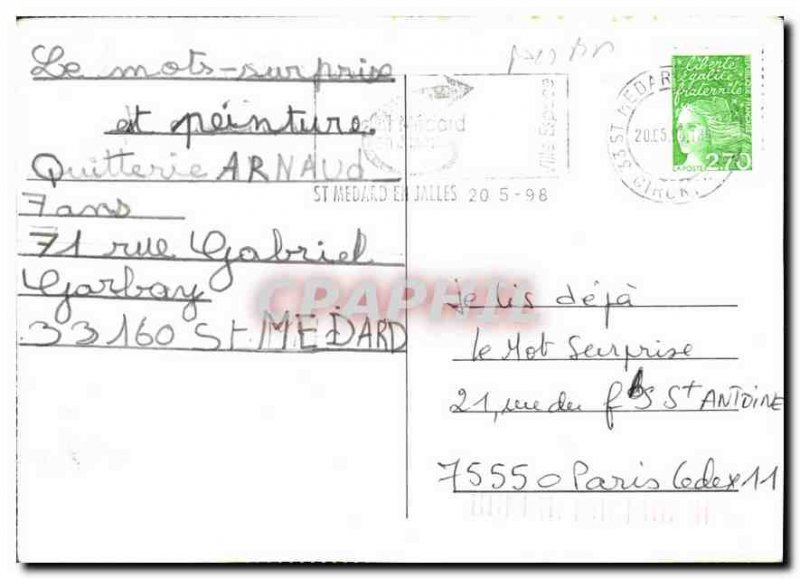 Le mots-surprise
et peinture.
Quitterie ARNAUD
7 ans
71 rue Gabriel
Garbay
33160 St MÉDARD
Ville Espace
ST MEDARD EN JALLES 20 5-98
33 ST MEDARD
liberté
égalité
fraternité
LA POSTE 2,70
CPAPHIL
je lis déjà
le Mot Surprise
21, rue du fbg St ANTOINE
75550 Paris Cedex 11